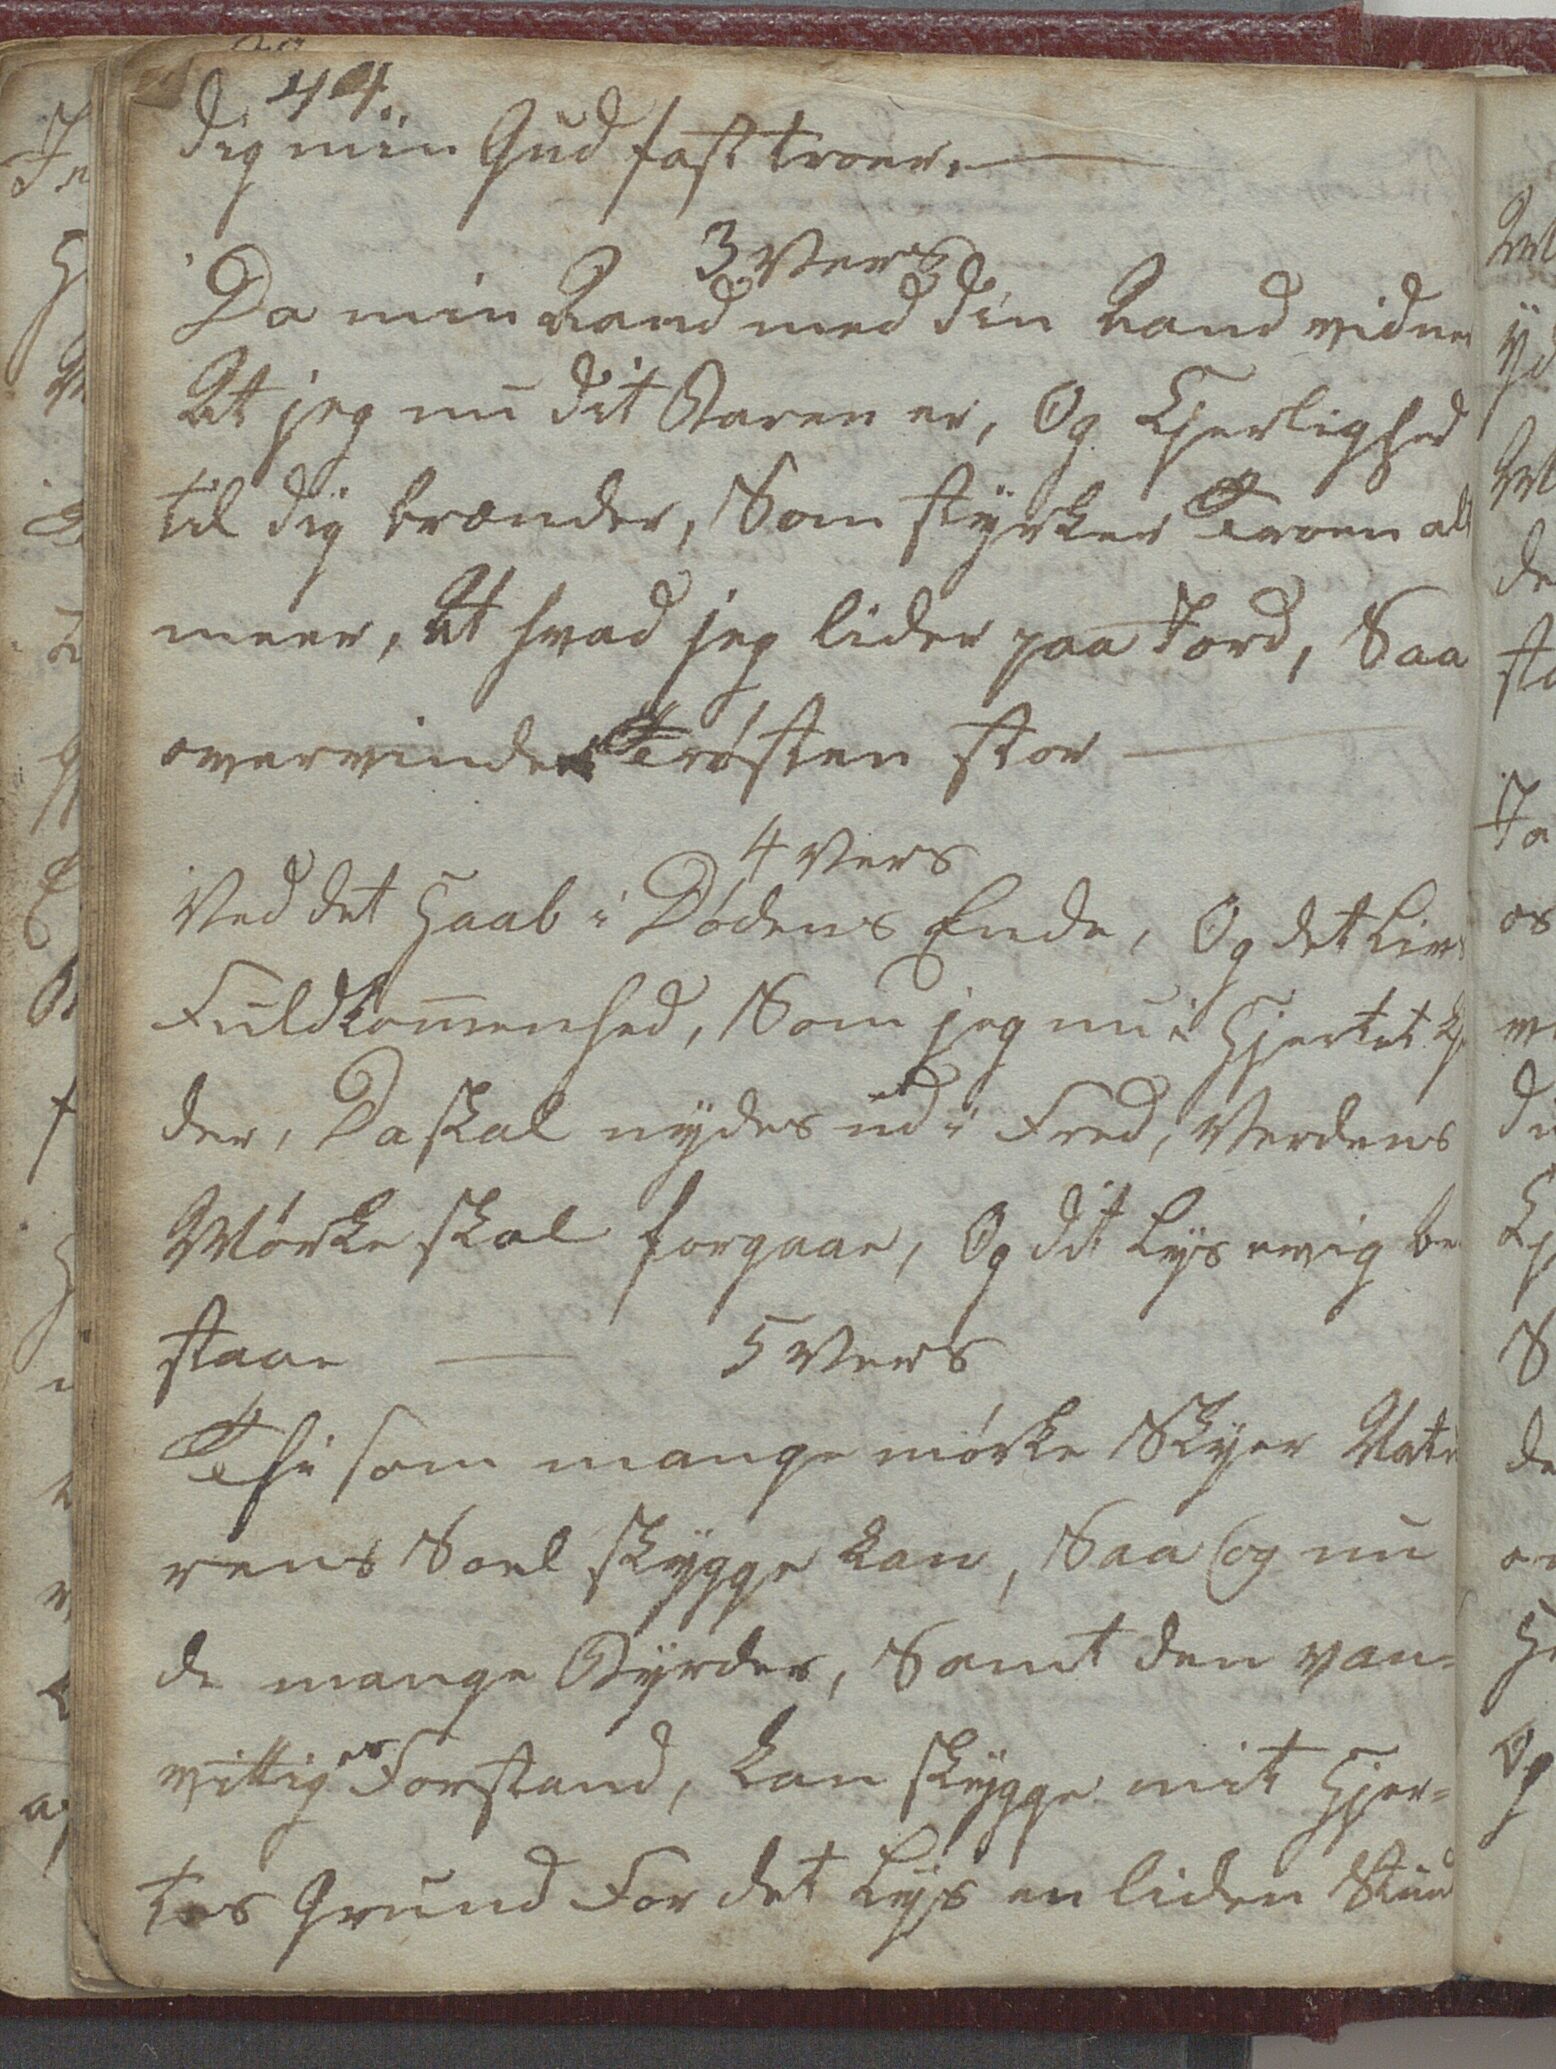 44.
dig min Gud fast troer.
3 Vers
Da min Aand med din Aand vidner
At jeg nu dit Baren er, Og Kjerlighed
til dig brænder, Som styrker Troen alt
meer, At hvad jeg lider paa Jord, Saa
overvinder Trøsten stor
4 Vers
Ved det Haab i Dødens Ende, Og det Livs
Fuldkommenhed, Som jeg nu i Hjertet kj
der, Da skal nydes ud i Fred, Verdens
Mørke skal forgaae, Og dit Lys evig be
staae
5 Vers
Thi som mange mørke Skyer Natu
rens Soel skygge kan, Saa og nu
de mange Byrder, Samt den van=
vittiges Forstand, kan skygge mit Hjer=
tes Grund For det Lys en liden Stund